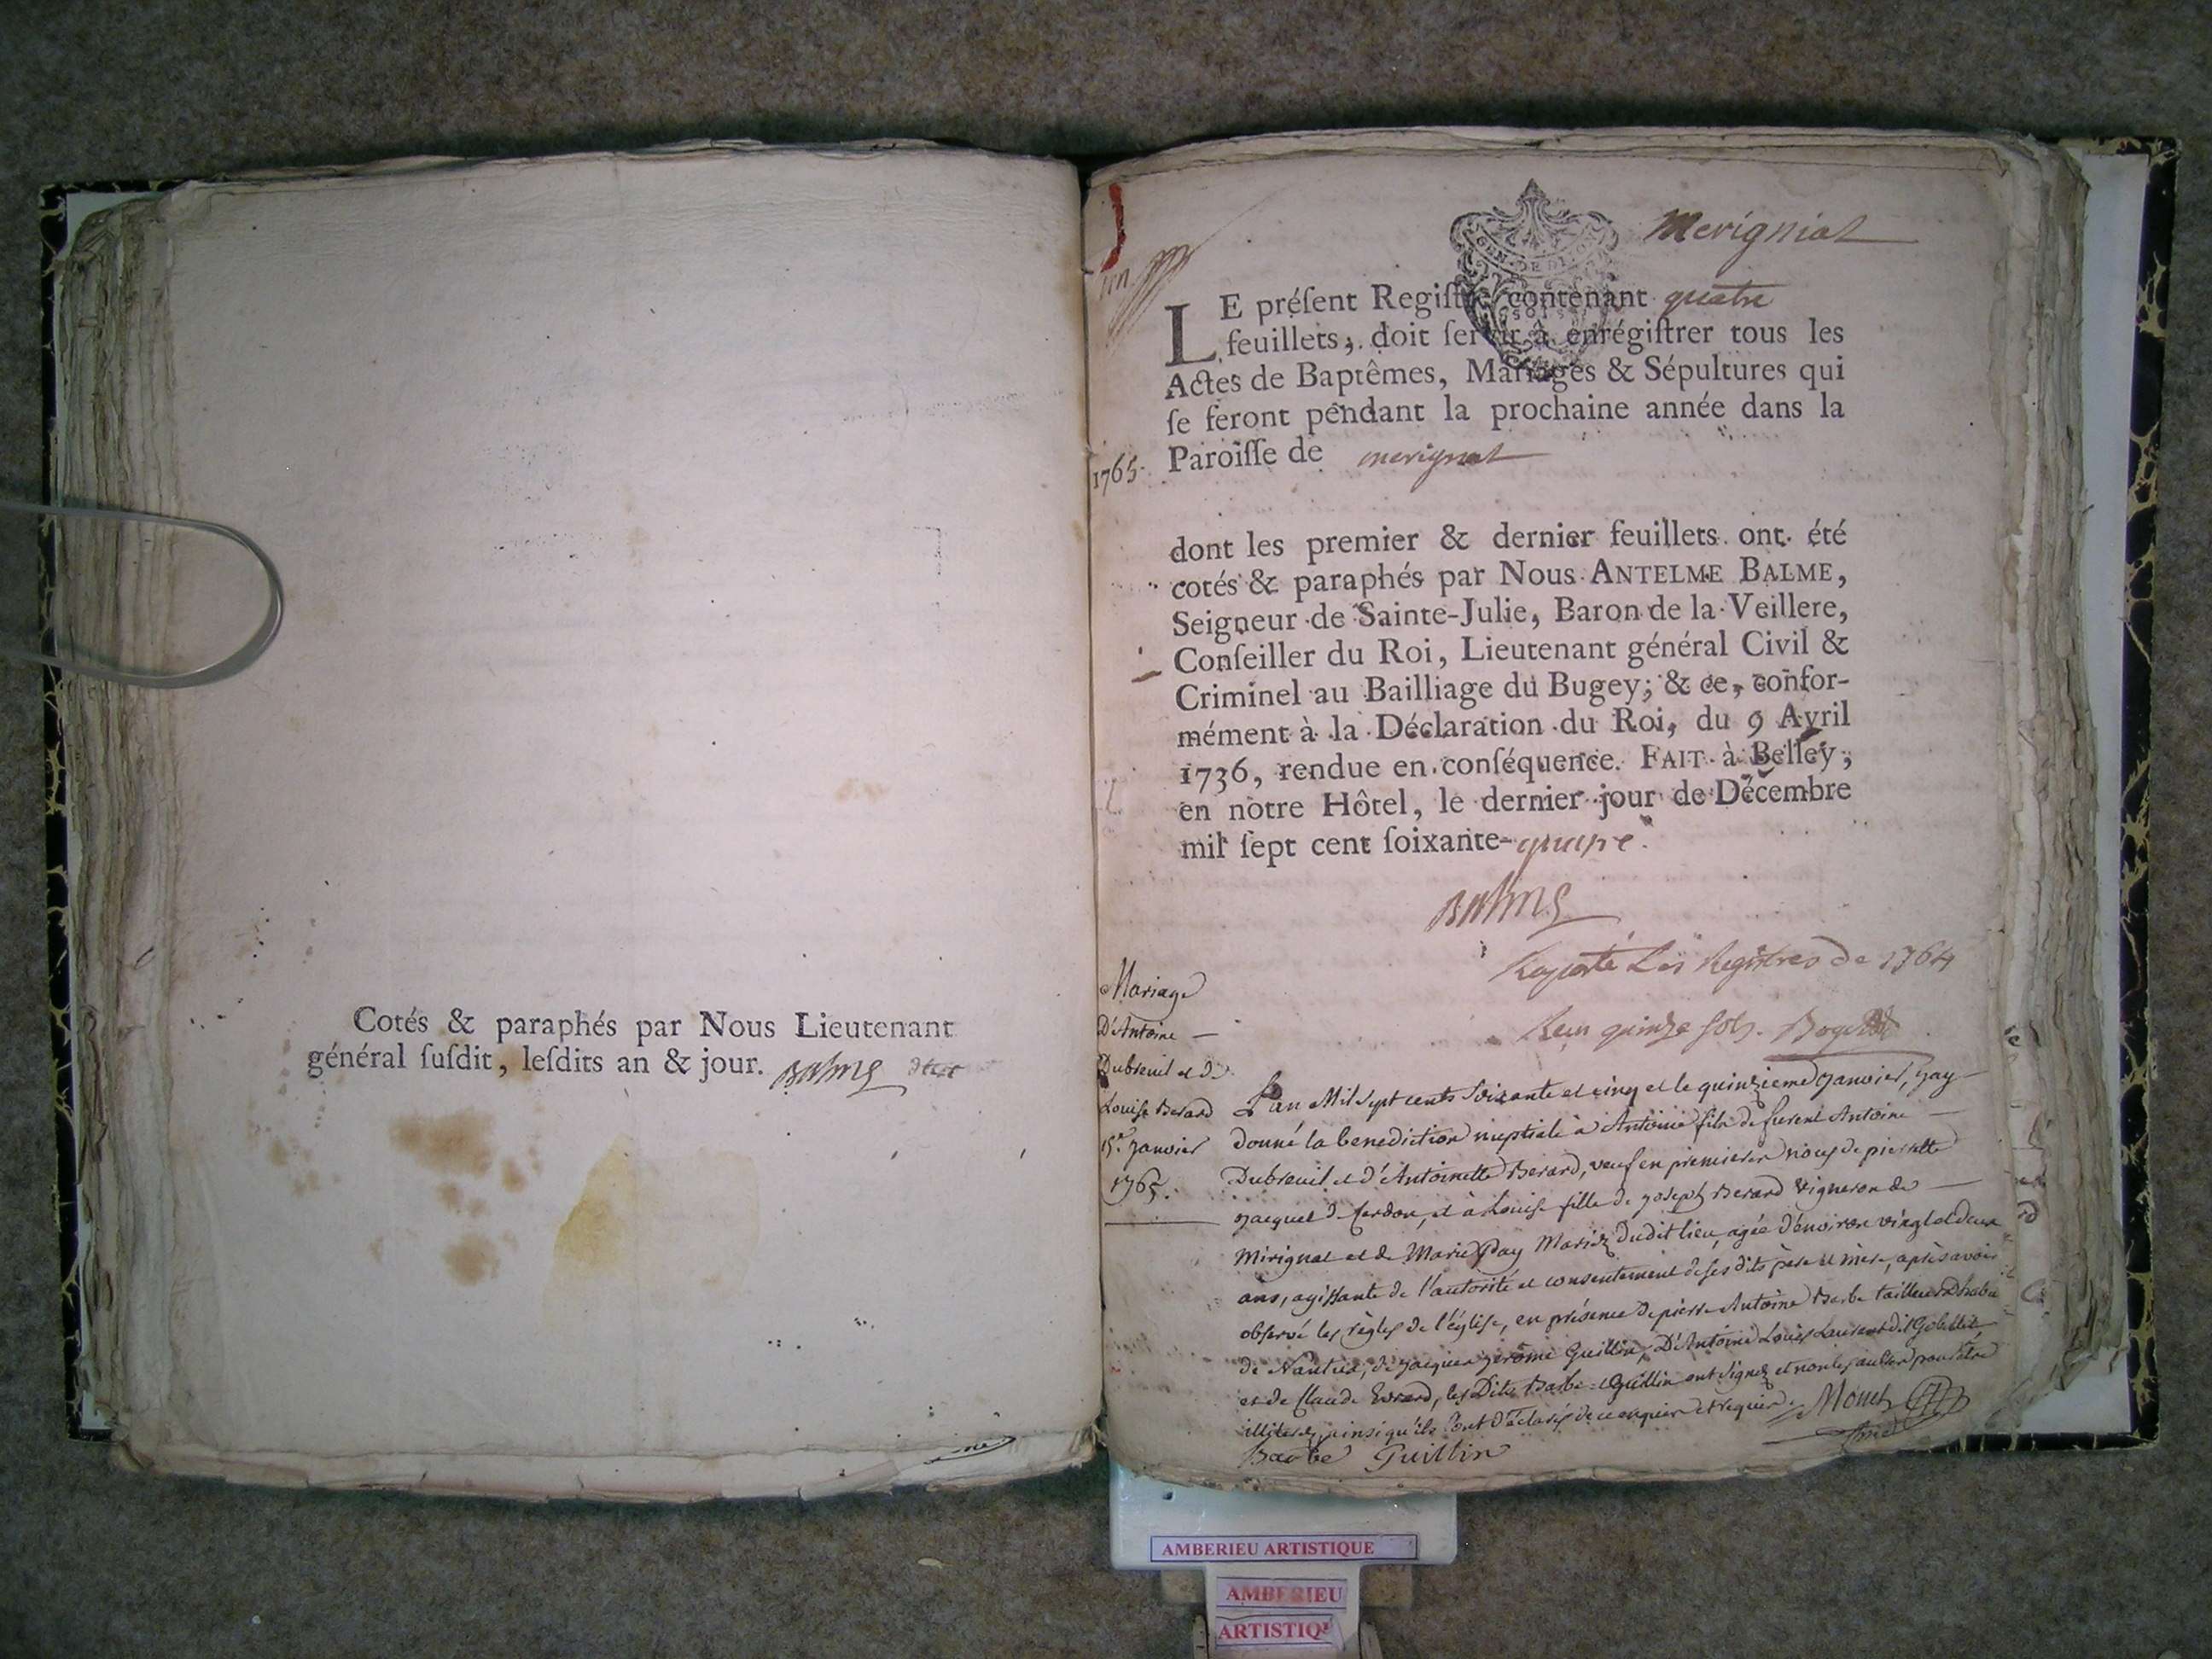 Cotés & paraphés par Nous Lieutenant
général ſuſdit, leſdits an & jour. Balme
Merigniat
un
GEN. DE DIJON
LE préſent Regiſtre contenant quatre
feuillets, doit ſervir à enrégiſtrer tous les
Actes de Baptêmes, Mariages & Sépultures qui
ſe feront pendant la prochaine année dans la
1765. Paroiſſe de merignat
dont les premier & dernier feuillets ont été
cotés & paraphés par Nous ANTELME BALME,
Seigneur de Sainte-Julie, Baron de la Veillere,
Conſeiller du Roi, Lieutenant général Civil &
Criminel au Bailliage du Bugey; & ce, confor-
mément à la Déclaration du Roi, du 9 Avril
1736, rendue en conſéquence. FAIT à Belley,
en notre Hôtel, le dernier jour de Décembre
mil ſept cent ſoixante-quatre.
Balme
Raporté Les Registres de 1764
Reçu quinze sols.
Mariage
D'Antoine
Dubreuil et de
Louise Berard
15e. Janvier
1765.
L'an Mil Sept cents Soixante et cinq et le quinzieme Janvier, jay
donné la benediction nuptiale à Antoine fils de furent Antoine
Dubreuil et d'Antoinette Berard, veuf en premieres noces de pierrette
Jacquet de Cerdon, et à Louise fille de Joseph Berard Vigneron de
Mirignat et de Marie Pay Mariez dudit lieu, agée d'environ vingt et deux
ans, agissante de l'autorité et consentement de ses dits père et mère, après avoir
observé les règles de l'église, en présence de pierre Antoine Barbe tailleur d'habit
de Nantua, de Jacques Jerome Guillin, D'Antoine Louis Laurent dit Gobillet
et de Claude Evrard, les Dits Barbe et Guillin ont signez et non les autres pour être
illiterez, ainsi qu'ils l'ont déclarés de ce enquis et requis. Monet
Barbe Guillin
AMBERIEU ARTISTIQUE
AMBERIEU
ARTISTIQ